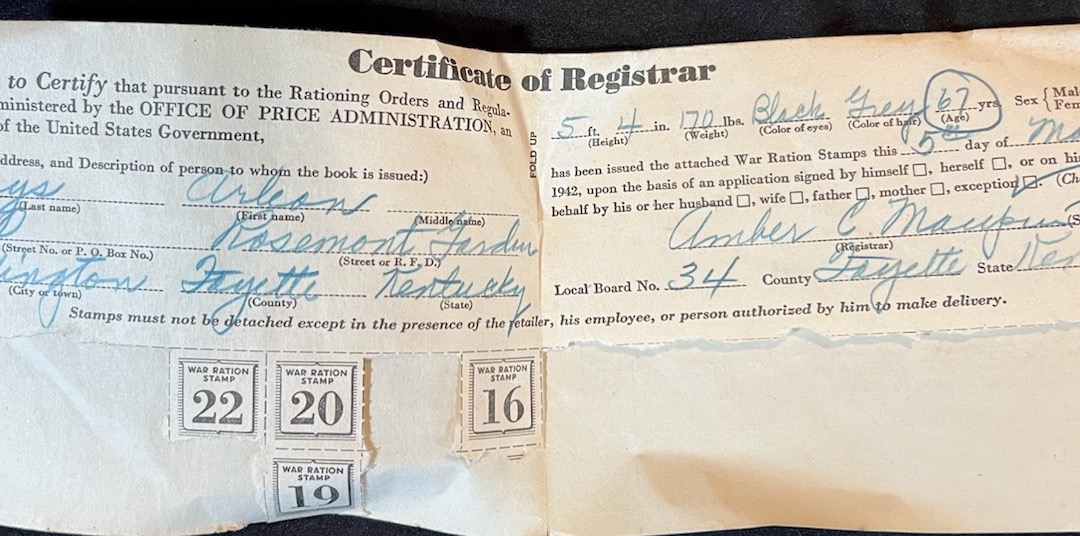 Certificate of Registrar
to Certify that pursuant to the Rationing Orders and Regula-
ministered by the OFFICE OF PRICE ADMINISTRATION, an
of the United States Government,
ddress, and Description of person to whom the book is issued:)
ys Arleon
(Last name) (First name) (Middle name)
Rosemont Garden
(Street No. or P. O. Box No.) (Street or R. F. D.)
ington Fayette Kentucky
(City or town) (County) (State)
FOLD UP
5 ft. 4 in. 170 lbs. Black Grey 67 yrs. Sex { Mal
Fem
(Height) (Weight) (Color of eyes) (Color of hair) (Age)
has been issued the attached War Ration Stamps this 5th day of Ma
1942, upon the basis of an application signed by himself □, herself □, or on hi
behalf by his or her husband □, wife □, father □, mother □, exception ☑. (Ch
Amber C. Maupin (S
(Registrar)
Local Board No. 34 County Fayette State Ken
Stamps must not be detached except in the presence of the retailer, his employee, or person authorized by him to make delivery.
WAR RATION
STAMP
22
WAR RATION
STAMP
20
WAR RATION
STAMP
16
WAR RATION
STAMP
19